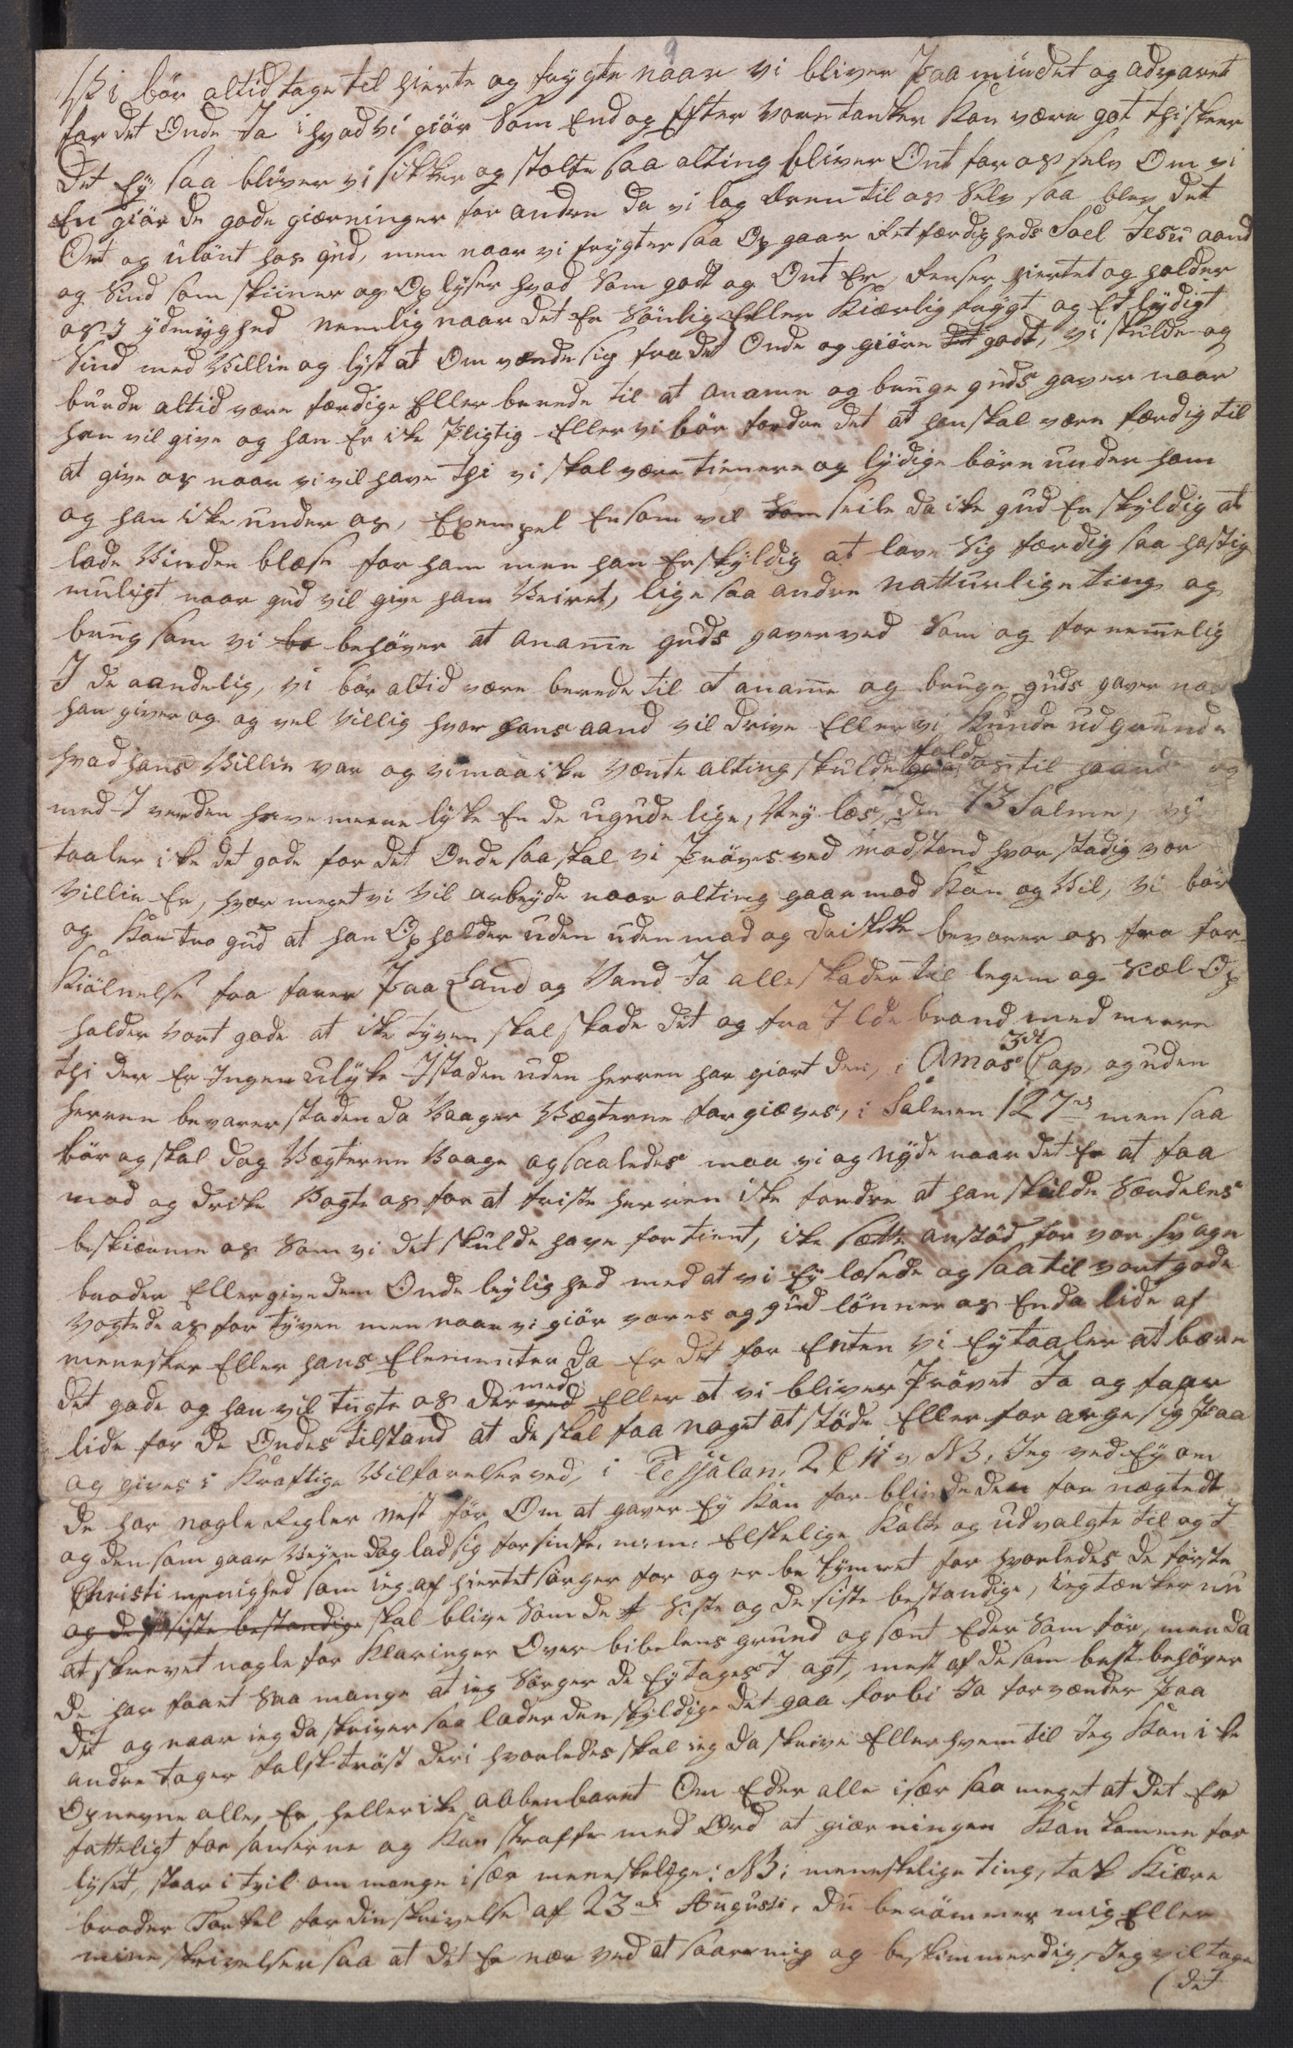 9
Vi bör altid tage til hierte og frygte naar vi bliver Paa mindet og advaret
for det Onde Ja i hvad vi giör Som End og Efter vore tanker Kan være got thi skeer
det Ey saa bliver vi sikker og stolte saa alting bliver Ont for os selv Om vi
En giör de gode gierninger for andre da vi lag dem til os Selv saa blev det
Ont og ulönt hos gud, men naar vi frygter saa Op gaar Retfærdigheds Soel Jesu aand
og Sind som skiiner og Oplyser hvad Som godt og Ont Er, Renser hiertet og holder
os J ydmyghed nemlig naar det Er Sönlig Eller Kiærlig frygt og Et lydigt
Sind med Villie og lyst at Om vende sig fra det Onde og giöre det godt, vi skulde og
burde altid være færdige Eller berede til at aname og bruge guds gaver naar
han vil give og han Er ike Pligtig Eller vi bör fordre det at han skal være færdig til
at give os naar vi vil have thi vi skal være tienere og lydige börn under ham
og han ike under os, Exempel En som vil Som seile da ike gud Er skyldig at
lade Vinden blæse for ham men han Er skyldig at lave Sig færdig saa hastig
muligt naar gud vil give ham Veiret, lige saa andre natturlige ting og
brug som vi be behöver at aname guds gaver ved Som og for nemelig
J de aandelig, vi bör altid være berede til at aname og bruge guds gaver
han giver og og vel villig hvor hans aand vil drive Eller vi Kunde udgrunde
hvad hans Villie var og vi maa ike vente alting skulde falde os til haande og
med J verden have meere lyke En de ugudelige, Ney læs den 73 Salme, vi
taaler ike det gode for det Onde saa skal vi Pröves ved modstand hvor stadig vor
Villie Er, hvor meget vi vil arbeyde naar alting gaar mod Kan og Vil, vi bör
og Kan tro gud at han Op holder uden uden mad og drikke bevarer os fra for-
Kiölnelse fra farer Paa Land og Vand Ja alle skader til legem og Siæl Op
holder vort gode at ike tyven skal skade dit og fra Jlde brand med meere
thi der Er Ingen ulyke J staden uden herren har giort den, i Amos 3dt Cap, og uden
herren bevarer staden da Vaager Vægterne forgiæves, i Salmen 127de men saa
bör og skal dog Vægterne Vaage og saaledes maa vi og nyde naar det Er at faa
mad og drike Vogte os for at friste herren ike fordre at han skulde Særdeles
beskierme os Som vi det skulde have fortient, ike sette anstöd for vor svage
broder Eller give dem Onde leylighed med at vi Ey læsede og saa til vort gode
vogtede os for tyven men naar vi giör vores og gud lönner os Enda lide af
mennesker Eller hans Elementer da Er det for Enten vi Ey taaler at bære
det gode og han vil tugte os der med Eller at vi bliver Prövet Ja og faar
lide for de Ondes tilstand at de skal faa noget at stöde Eller for arge sig Paa
og gives i Kraftige Vilfarelser ved, i Tessalon, 2 C 11 v NB. Jeg ved Ey om
de har nogle Regler nest för Om at gaver Ey Kan for blinde dem for nægtedt
og den som gaar Veyen dog lad sig forsinke. m: m: Elskelige Kalte og udvalgte til og J
Christi menighed som ieg af hiertet sörger for og er be kymret for hvorledes de förste
og de siste bestandige skal blive Som de Siste og de siste bestandige, ieg tænker nu
at skrevet nogle for Klaringer Over bibelens grund og sent Eder Som för, men da
de har faaet Saa mange at ieg Sörger de Ey tages J agt, mest af de som best behöver
det og naar ieg da skriver saa lader den skyldige det gaa forbi Ja forvænder Paa
andre tager falsk tröst deri hvorledes skal ieg da skrive Eller hvem til Jeg Kan ike
Opnevne alle, Er heller ike aabenbaret Om Eder alle især saa meget at det Er
fatteligt for sanserne og Kan straffe med Ord at gierningen Kan komme for
lyset, staar i tvil om mange især menskelige: NB: menskelige ting, tak Kiere
broder Torkel for din skrivelse af 23de Augusti, du berömmer mig Eller
mine skrivelser saa at det Er nær ved at saare mig og beskimmer dig, Jeg vil tage
(det